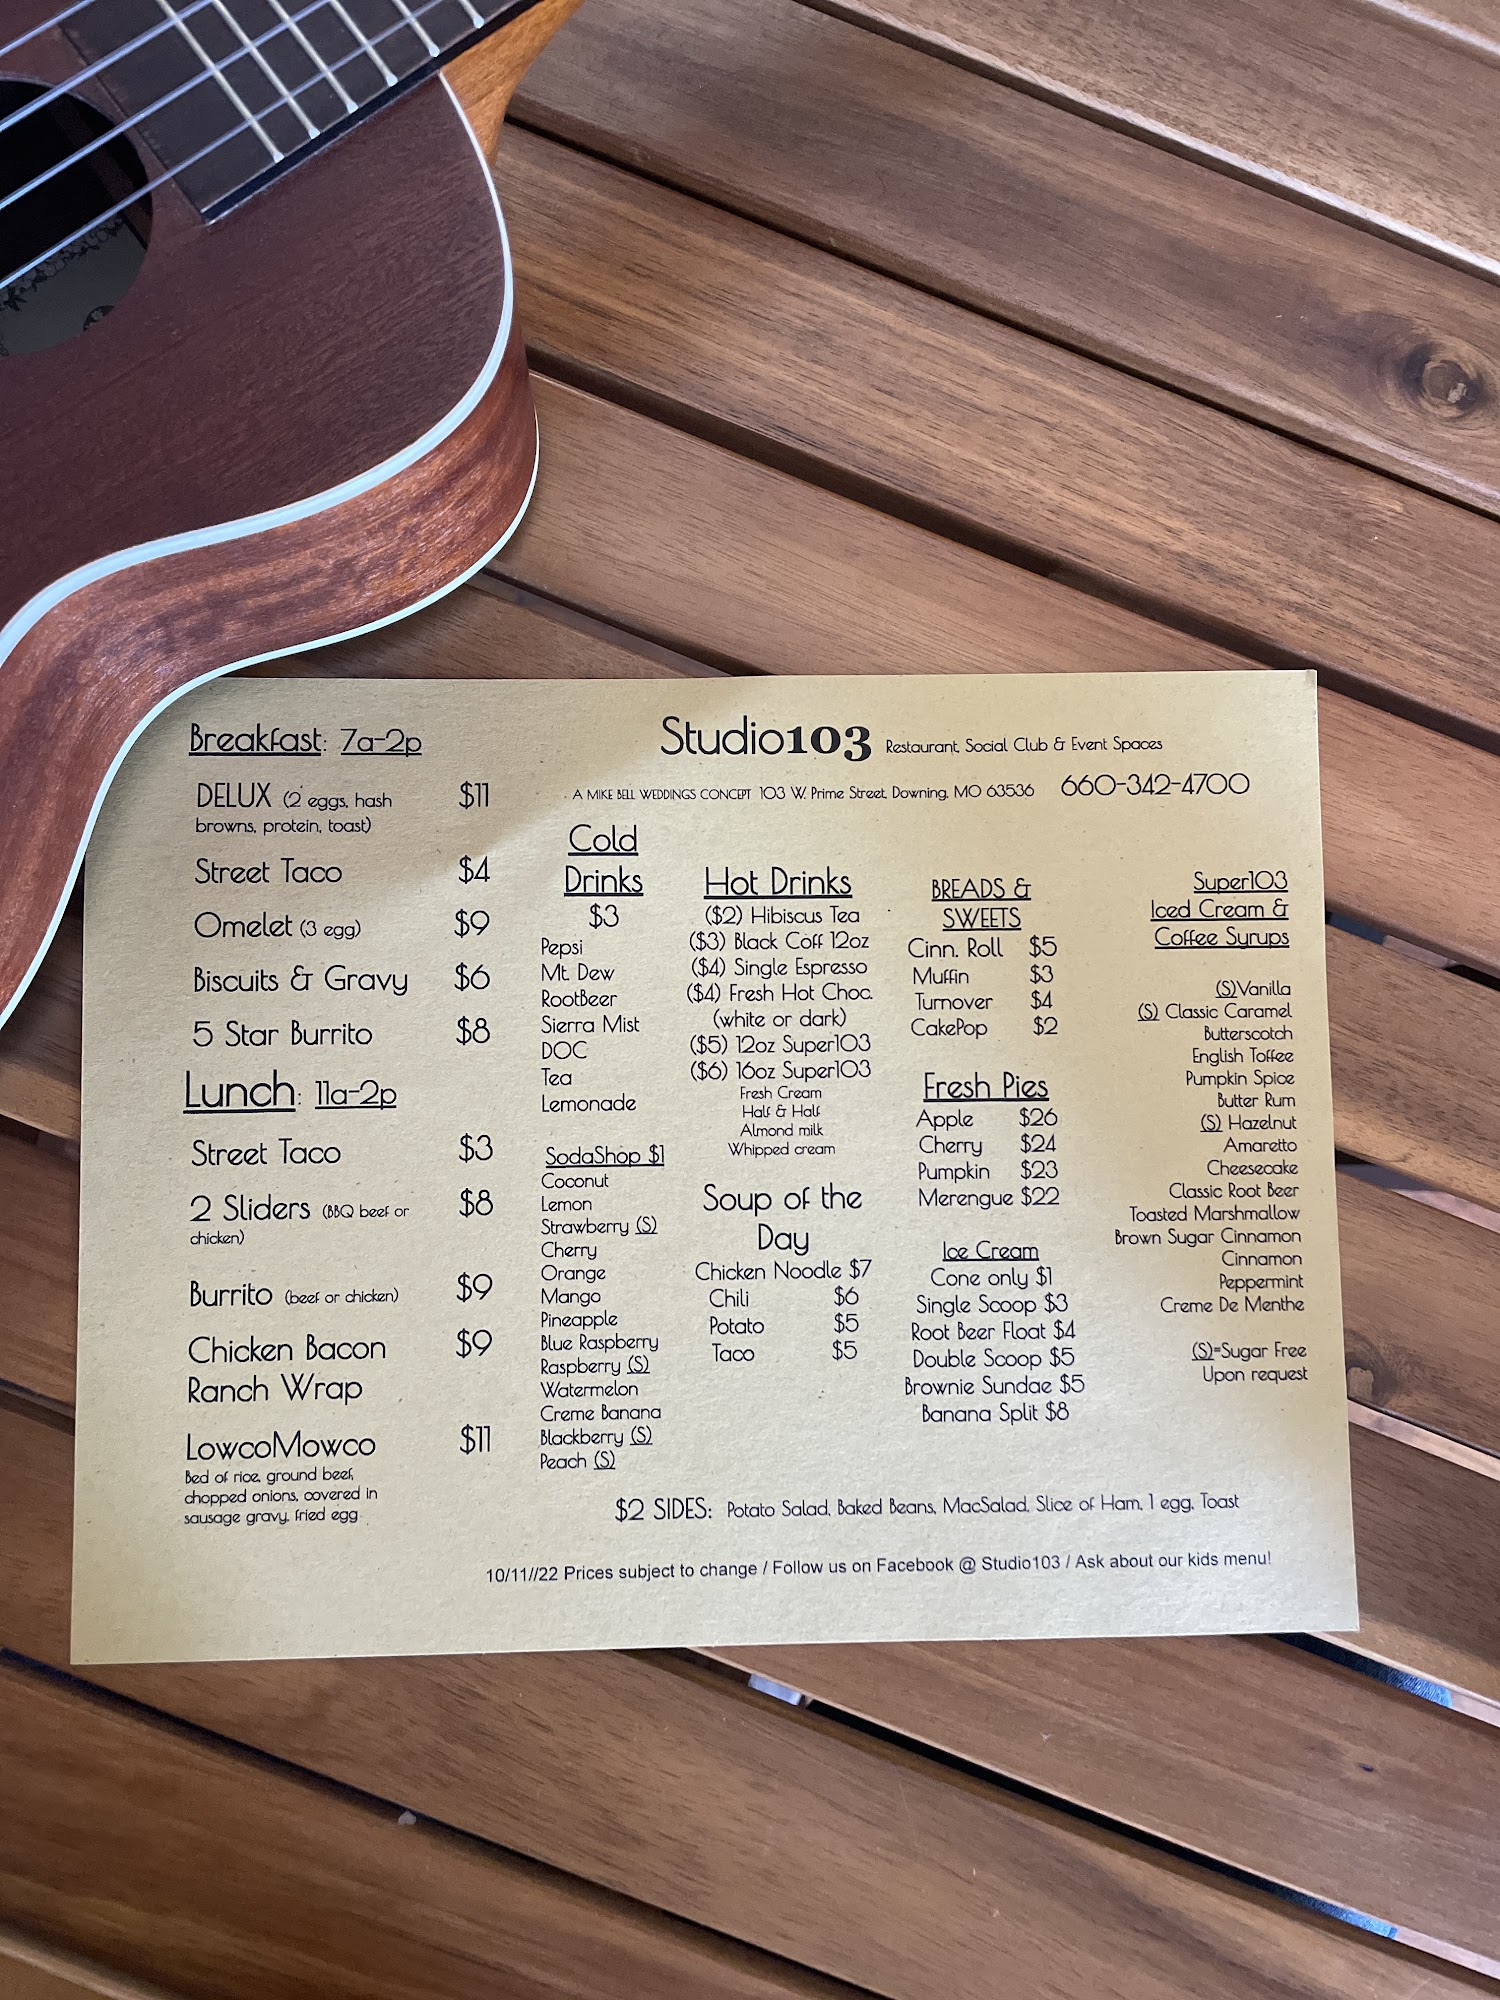 Studio103 Restaurant, Social Club & Event Spaces
A MIKE BELL WEDDINGS CONCEPT 103 W. Prime Street, Downing, MO 63536 660-342-4700
Breakfast: 7a-2p
DELUX (2 eggs, hash $11
browns, protein, toast)
Street Taco $4
Omelet (3 egg) $9
Biscuits & Gravy $6
5 Star Burrito $8
Lunch: 11a-2p
Street Taco $3
2 Sliders (BBQ beef or $8
chicken)
Burrito (beef or chicken) $9
Chicken Bacon $9
Ranch Wrap
LowcoMowco $11
Bed of rice, ground beef,
chopped onions, covered in
sausage gravy, fried egg
Cold
Drinks
$3
Pepsi
Mt. Dew
RootBeer
Sierra Mist
DOC
Tea
Lemonade
SodaShop $1
Coconut
Lemon
Strawberry (S)
Cherry
Orange
Mango
Pineapple
Blue Raspberry
Raspberry (S)
Watermelon
Creme Banana
Blackberry (S)
Peach (S)
Hot Drinks
($2) Hibiscus Tea
($3) Black Coff 12oz
($4) Single Espresso
($4) Fresh Hot Choc.
(white or dark)
($5) 12oz Super103
($6) 16oz Super103
Fresh Cream
Half & Half
Almond milk
Whipped cream
Soup of the
Day
Chicken Noodle $7
Chili $6
Potato $5
Taco $5
BREADS &
SWEETS
Cinn. Roll $5
Muffin $3
Turnover $4
CakePop $2
Fresh Pies
Apple $26
Cherry $24
Pumpkin $23
Merengue $22
Ice Cream
Cone only $1
Single Scoop $3
Root Beer Float $4
Double Scoop $5
Brownie Sundae $5
Banana Split $8
Super103
Iced Cream &
Coffee Syrups
(S)Vanilla
(S) Classic Caramel
Butterscotch
English Toffee
Pumpkin Spice
Butter Rum
(S) Hazelnut
Amaretto
Cheesecake
Classic Root Beer
Toasted Marshmallow
Brown Sugar Cinnamon
Cinnamon
Peppermint
Creme De Menthe
(S)=Sugar Free
Upon request
$2 SIDES: Potato Salad, Baked Beans, MacSalad, Slice of Ham, 1 egg, Toast
10/11//22 Prices subject to change / Follow us on Facebook @ Studio103 / Ask about our kids menu!